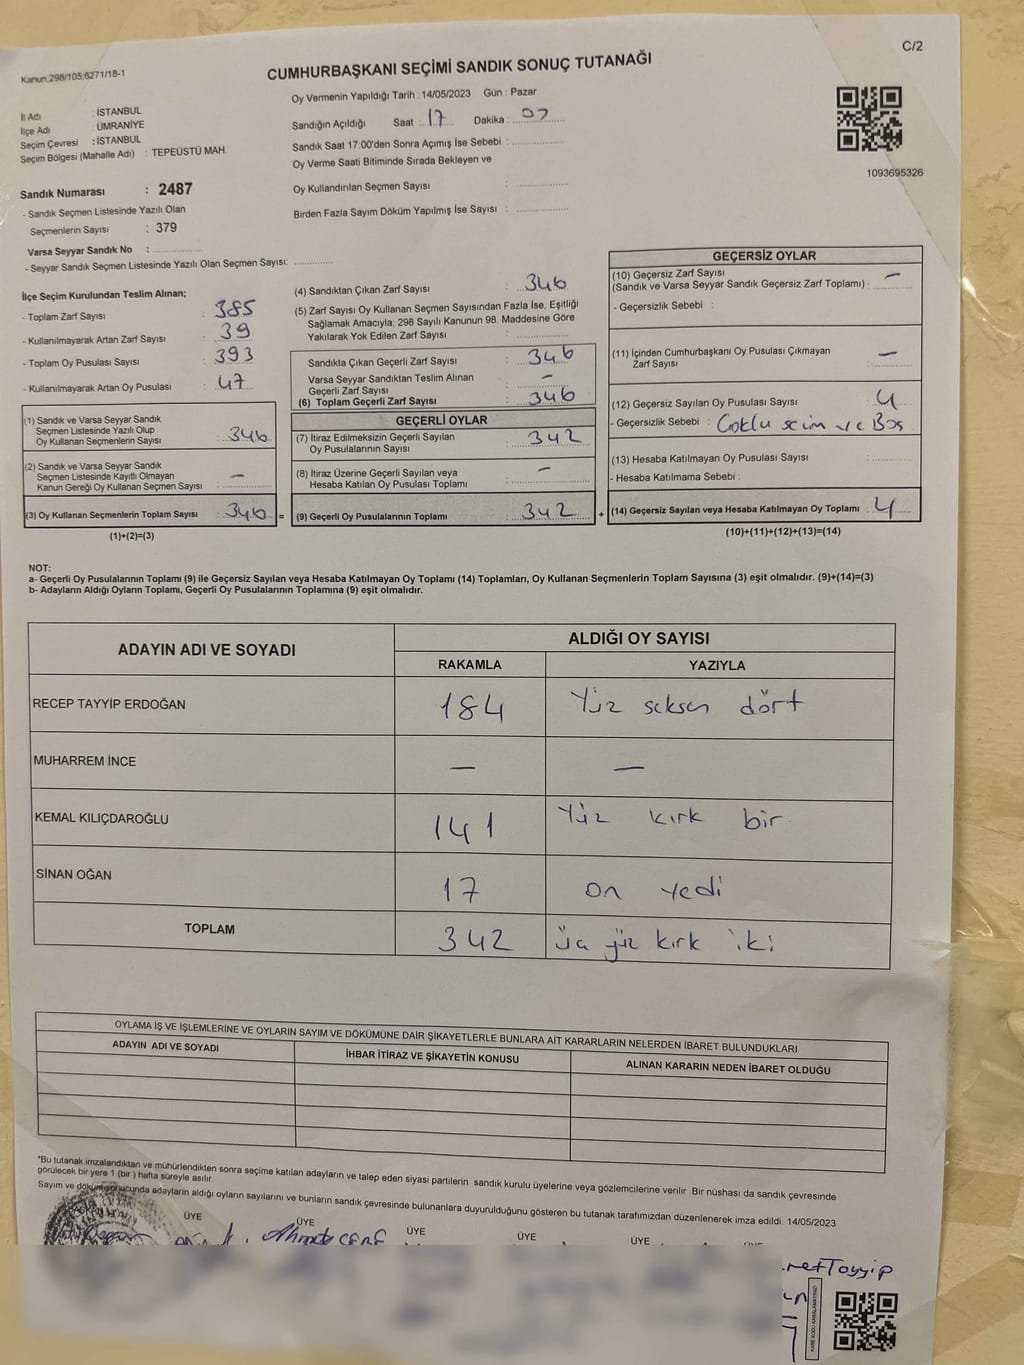 C/2
Kanun:298/105;6271/18-1
CUMHURBAŞKANI SEÇİMİ SANDIK SONUÇ TUTANAĞI
Oy Vermenin Yapıldığı Tarih : 14/05/2023 Gün : Pazar
İl Adı : İSTANBUL
İlçe Adı : ÜMRANİYE
Seçim Çevresi : İSTANBUL
Seçim Bölgesi (Mahalle Adı) : TEPEÜSTÜ MAH.
Sandık Numarası : 2487
- Sandık Seçmen Listesinde Yazılı Olan
Seçmenlerin Sayısı : 379
Varsa Seyyar Sandık No :
- Seyyar Sandık Seçmen Listesinde Yazılı Olan Seçmen Sayısı:
Sandığın Açıldığı Saat : 17 Dakika : 07
Sandık Saat 17:00'den Sonra Açımış İse Sebebi :
Oy Verme Saati Bitiminde Sırada Bekleyen ve
Oy Kullandırılan Seçmen Sayısı :
Birden Fazla Sayım Döküm Yapılmış İse Sayısı :
1093695326
İlçe Seçim Kurulundan Teslim Alınan;
- Toplam Zarf Sayısı : 385
- Kullanılmayarak Artan Zarf Sayısı : 39
- Toplam Oy Pusulası Sayısı : 393
- Kullanılmayarak Artan Oy Pusulası : 47
(1) Sandık ve Varsa Seyyar Sandık
Seçmen Listesinde Yazılı Olup
Oy Kullanan Seçmenlerin Sayısı : 346
(2) Sandık ve Varsa Seyyar Sandık
Seçmen Listesinde Kayıtlı Olmayan
Kanun Gereği Oy Kullanan Seçmen Sayısı : —
(3) Oy Kullanan Seçmenlerin Toplam Sayısı : 346 =
(1)+(2)=(3)
(4) Sandıktan Çıkan Zarf Sayısı : 346
(5) Zarf Sayısı Oy Kullanan Seçmen Sayısından Fazla İse, Eşitliği
Sağlamak Amacıyla; 298 Sayılı Kanunun 98. Maddesine Göre
Yakılarak Yok Edilen Zarf Sayısı :
Sandıkta Çıkan Geçerli Zarf Sayısı : 346
Varsa Seyyar Sandıktan Teslim Alınan
Geçerli Zarf Sayısı : —
(6) Toplam Geçerli Zarf Sayısı : 346
GEÇERLİ OYLAR
(7) İtiraz Edilmeksizin Geçerli Sayılan
Oy Pusulalarının Sayısı : 342
(8) İtiraz Üzerine Geçerli Sayılan veya
Hesaba Katılan Oy Pusulası Toplamı : —
(9) Geçerli Oy Pusulalarının Toplamı : 342 +
GEÇERSİZ OYLAR
(10) Geçersiz Zarf Sayısı
(Sandık ve Varsa Seyyar Sandık Geçersiz Zarf Toplamı) : —
- Geçersizlik Sebebi :
(11) İçinden Cumhurbaşkanı Oy Pusulası Çıkmayan
Zarf Sayısı : —
(12) Geçersiz Sayılan Oy Pusulası Sayısı : 4
- Geçersizlik Sebebi : Çoklu scim ve Boş
(13) Hesaba Katılmayan Oy Pusulası Sayısı :
- Hesaba Katılmama Sebebi :
(14) Geçersiz Sayılan veya Hesaba Katılmayan Oy Toplamı : 4
(10)+(11)+(12)+(13)=(14)
NOT:
a- Geçerli Oy Pusulalarının Toplamı (9) ile Geçersiz Sayılan veya Hesaba Katılmayan Oy Toplamı (14) Toplamları, Oy Kullanan Seçmenlerin Toplam Sayısına (3) eşit olmalıdır. (9)+(14)=(3)
b- Adayların Aldığı Oyların Toplamı, Geçerli Oy Pusulalarının Toplamına (9) eşit olmalıdır.
ADAYIN ADI VE SOYADI ALDIĞI OY SAYISI
RAKAMLA YAZIYLA
RECEP TAYYİP ERDOĞAN 184 Yüz seksen dört
MUHARREM İNCE — —
KEMAL KILIÇDAROĞLU 141 Yüz kırk bir
SİNAN OĞAN 17 on yedi
TOPLAM 342 üç yüz kırk iki
OYLAMA İŞ VE İŞLEMLERİNE VE OYLARIN SAYIM VE DÖKÜMÜNE DAİR ŞİKAYETLERLE BUNLARA AİT KARARLARIN NELERDEN İBARET BULUNDUKLARI
ADAYIN ADI VE SOYADI İHBAR İTİRAZ VE ŞİKAYETİN KONUSU ALINAN KARARIN NEDEN İBARET OLDUĞU
*Bu tutanak imzalandıktan ve mühürlendikten sonra seçime katılan adayların ve talep eden siyasi partilerin sandık kurulu üyelerine veya gözlemcilerine verilir .Bir nüshası da sandık çevresinde
görülecek bir yere 1 (bir ) hafta süreyle asılır.
Sayım ve dökümü sonucunda adayların aldığı oyların sayılarını ve bunların sandık çevresinde bulunanlara duyurulduğunu gösteren bu tutanak tarafımızdan düzenlenerek imza edildi. 14/05/2023
ÜYE ÜYE ÜYE ÜYE ÜYE
Ahmet
Tayyip